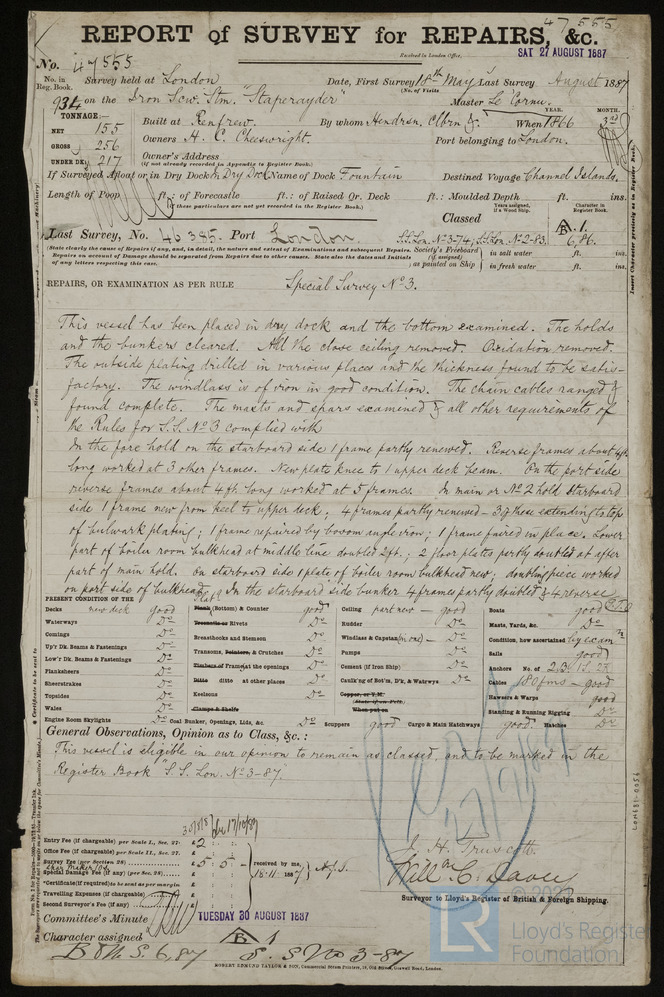 47555
REPORT of SURVEY for REPAIRS, &c.
Received in London Office,
SAT 27 AUGUST 1887
No. 47555
No. in Reg. Book.
Survey held at London
Date, First Survey 18th May Last Survey August 1887
(No. of Visits
934 on the Iron Scw. Stm. "Staperayder"
Master Le Cornu.
TONNAGE:—
NET 155
GROSS 256
UNDER DK. 217
YEAR. MONTH.
Built at Renfrew. By whom Hendrsn, Clbrn & When 1866 3mo
Owners H. C. Cheeswright. Port belonging to London.
Owner's Address
(if not already recorded in Appendix to Register Book.)
If Surveyed Afloat or in Dry Dock in Dry Dock Name of Dock Fountain Destined Voyage Channel Islands.
Length of Poop ft.: of Forecastle ft.: of Raised Qr. Deck ft.: Moulded Depth ft. ins.
(if these particulars are not yet recorded in the Register Book.)
Years assigned, if a Wood Ship.
Character in Register Book.
Classed
A.1.
6,86.
Last Survey, No. 46385. Port London. S.S. Lon. No. 3-74, S.S. Lon. No. 2-83.
(State clearly the cause of Repairs if any, and, in detail, the nature and extent of Examinations and subsequent Repairs.
Repairs on account of Damage should be separated from Repairs due to other causes. State also the dates and Initials of any letters respecting this case.)
Society's Freeboard (if assigned) as painted on Ship
in salt water ft. ins.
in fresh water ft. ins.
REPAIRS, OR EXAMINATION AS PER RULE Special Survey No. 3.
This vessel has been placed in dry dock and the bottom examined. The holds
and the bunkers cleared. All the close ceiling removed. Oxidation removed.
The outside plating drilled in various places and the thickness found to be satis-
factory. The windlass is of iron in good condition. The chain cables ranged &
found complete. The masts and spars examined & all other requirements of
the Rules for S.S. No 3 complied with
In the fore hold on the starboard side 1 frame partly renewed. Reverse frames about 4 ft.
long worked at 3 other frames. New plate knee to 1 upper deck beam. On the port side
reverse frames about 4 ft. long worked at 5 frames. In main or No 2 hold starboard
side 1 frame new from keel to upper deck; 4 frames partly renewed - 3 of these extending to top
of bulwark plating; 1 frame repaired by bosom angle iron; 1 frame faired in place. Lower
part of boiler room bulkhead at middle line doubled 2 ft.; 2 floor plates partly doubled at after
part of main hold. On starboard side 1 plate of boiler room bulkhead new; doubling piece worked
on port side of bulkhead. In the starboard side bunker 4 frames partly doubled & 4 reverse
P.T.O
PRESENT CONDITION OF THE
Decks new deck good
Waterways Do
Comings Do
Up'r Dk. Beams & Fastenings Do
Low'r Dk. Beams & Fastenings Do
Planksheers Do
Sheerstrakes Do
Topsides Do
Wales Do
Engine Room Skylights Do
Plank (Bottom) & Counter good
Treenails or Rivets Do
Breasthooks and Stemson Do
Transoms, Pointers, & Crutches Do
Timbers of Frame at the openings Do
Ditto ditto at other places Do
Keelsons Do
Clamps & Shelfs
Coal Bunker, Openings, Lids, &c. Do
Ceiling part new - good
Rudder Do
Windlass & Capstan (in one) - Do
Pumps Do
Cement (if Iron Ship) Do
Caulk'ng of Bot'm, D'k, & Watrwys Do
Copper, or Y.M.
When put on
Scuppers good Cargo & Main Hatchways good Hatches Do
Boats good
Masts, Yards, &c. Do
Condition, how ascertained by exam'n
Sails good
Anchors No. of
Cables 180 fms - good
Hawsers & Warps good
Standing & Running Rigging Do
General Observations, Opinion as to Class, &c. :
This vessel is eligible in our opinion to remain as classed, and to be marked in the
Register Book "S.S. Lon. No. 3-87."
Entry Fee (if chargeable) per Scale I., Sec. 27: £2
Office Fee (if chargeable) per Scale II., Sec. 27: £
Survey Fee (per Section 28) £5 5
Special Damage Fee (if any) (per Sec. 28) £
*Certificate (if required) to be sent as per margin £
Travelling Expenses (if chargeable) £
Second Surveyor's Fee (if any) £
received by me,
J. H. Truscott
Will'm C. Davey
Surveyor to Lloyd's Register of British & Foreign Shipping.
Committee's Minute TUESDAY 30 AUGUST 1887
Character assigned A 1
B & M S. 6,87 S. S No 3-87
ROBERT EDMUND TAYLOR & SON, Commercial Steam Printers, 19, Old Street, Goswell Road, London.
LON881-0056
LR
© 202
Lloyd's Register
Foundation